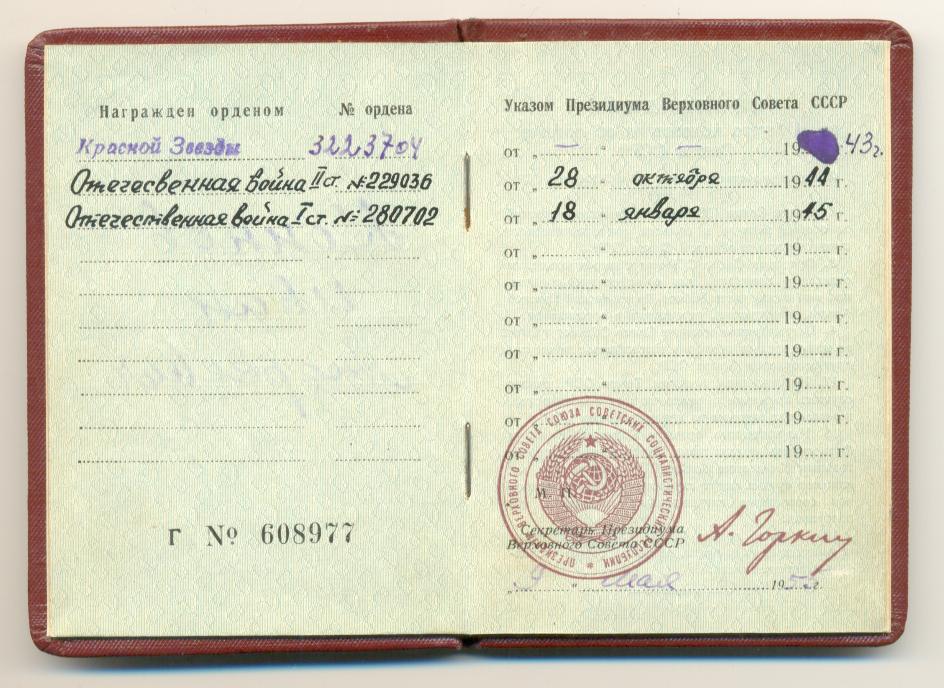 Награжден орденом № ордена
Красной Звезды 3223704
Отечесвенная война II ст. № 229036
Отечественная война I ст. № 280702
Г № 608977
Указом Президиума Верховного Совета СССР
от „ — “ — 19 43 г.
от „ 28 октября 1944 г.
от „ 18 января 1945 г.
от „ “ 19 г.
от „ “ 19 г.
от „ “ 19 г.
от „ “ 19 г.
от „ “ 19 г.
от „ “ 19 г.
от „ “ 19 г.
М. П.
ПРЕЗИДИУМ ВЕРХОВНОГО СОВЕТА СОЮЗА СОВЕТСКИХ СОЦИАЛИСТИЧЕСКИХ РЕСПУБЛИК
Секретарь Президиума
Верховного Совета СССР
А. Горкин
„ 9 “ мая 195 г.